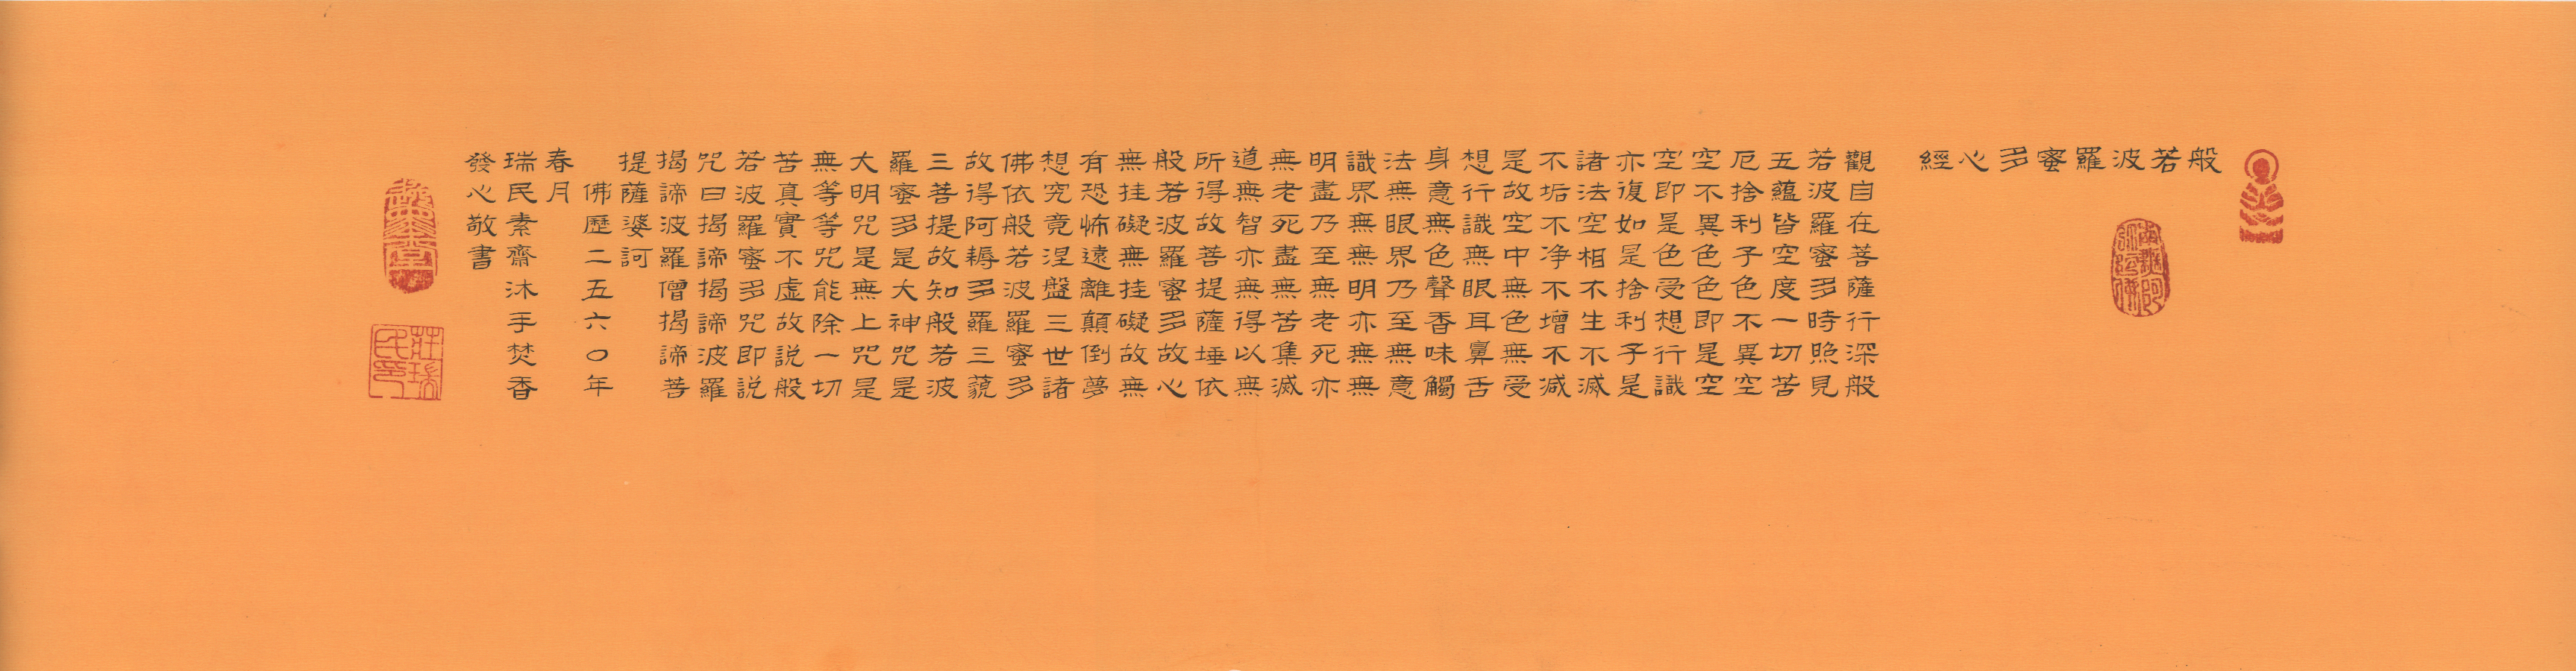 般若波羅蜜多心經
南無阿彌陀佛
觀自在菩薩行深般
若波羅蜜多時照見
五蘊皆空度一切苦
厄捨利子色不異空
空不異色色即是空
空即是色受想行識
亦復如是捨利子是
諸法空相不生不滅
不垢不净不增不減
是故空中無色無受
想行識無眼耳鼻舌
身意無色聲香味觸
法無眼界乃至無意
識界無無明亦無無
明盡乃至無老死亦
無老死盡無苦集滅
道無智亦無得以無
所得故菩提薩埵依
般若波羅蜜多故心
無挂礙無挂礙故無
有恐怖遠離顛倒夢
想究竟涅盤三世諸
佛依般若波羅蜜多
故得阿耨多羅三藐
三菩提故知般若波
羅蜜多是大神咒是
大明咒是無上咒是
無等等咒能除一切
苦真實不虛故説般
若波羅蜜多咒即説
咒曰揭諦揭諦波羅
揭諦波羅僧揭諦菩
提薩婆訶
佛歷二五六〇年
春月
瑞民素齋沐手焚香
發心敬書
莊瑞民印